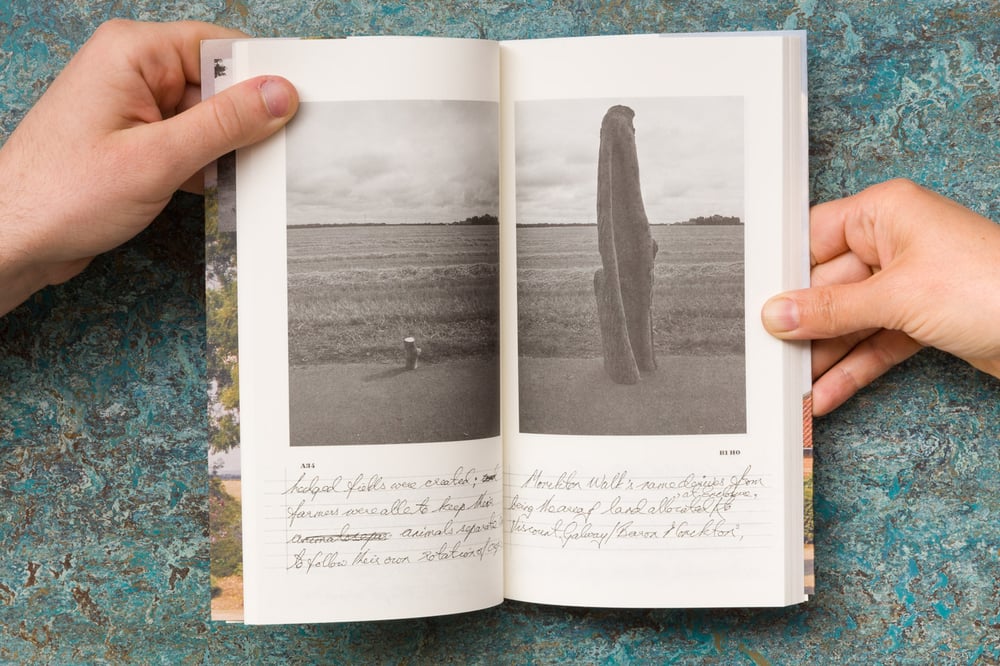 A34
hedged fields were created; and
farmers were able to keep their
animals separ animals separate
to follow their own rotation of
B1 H0
Monckton Walk's name derives from
being the area of land allocated, at enclosure, to
Viscount Galway/Baron Monckton,